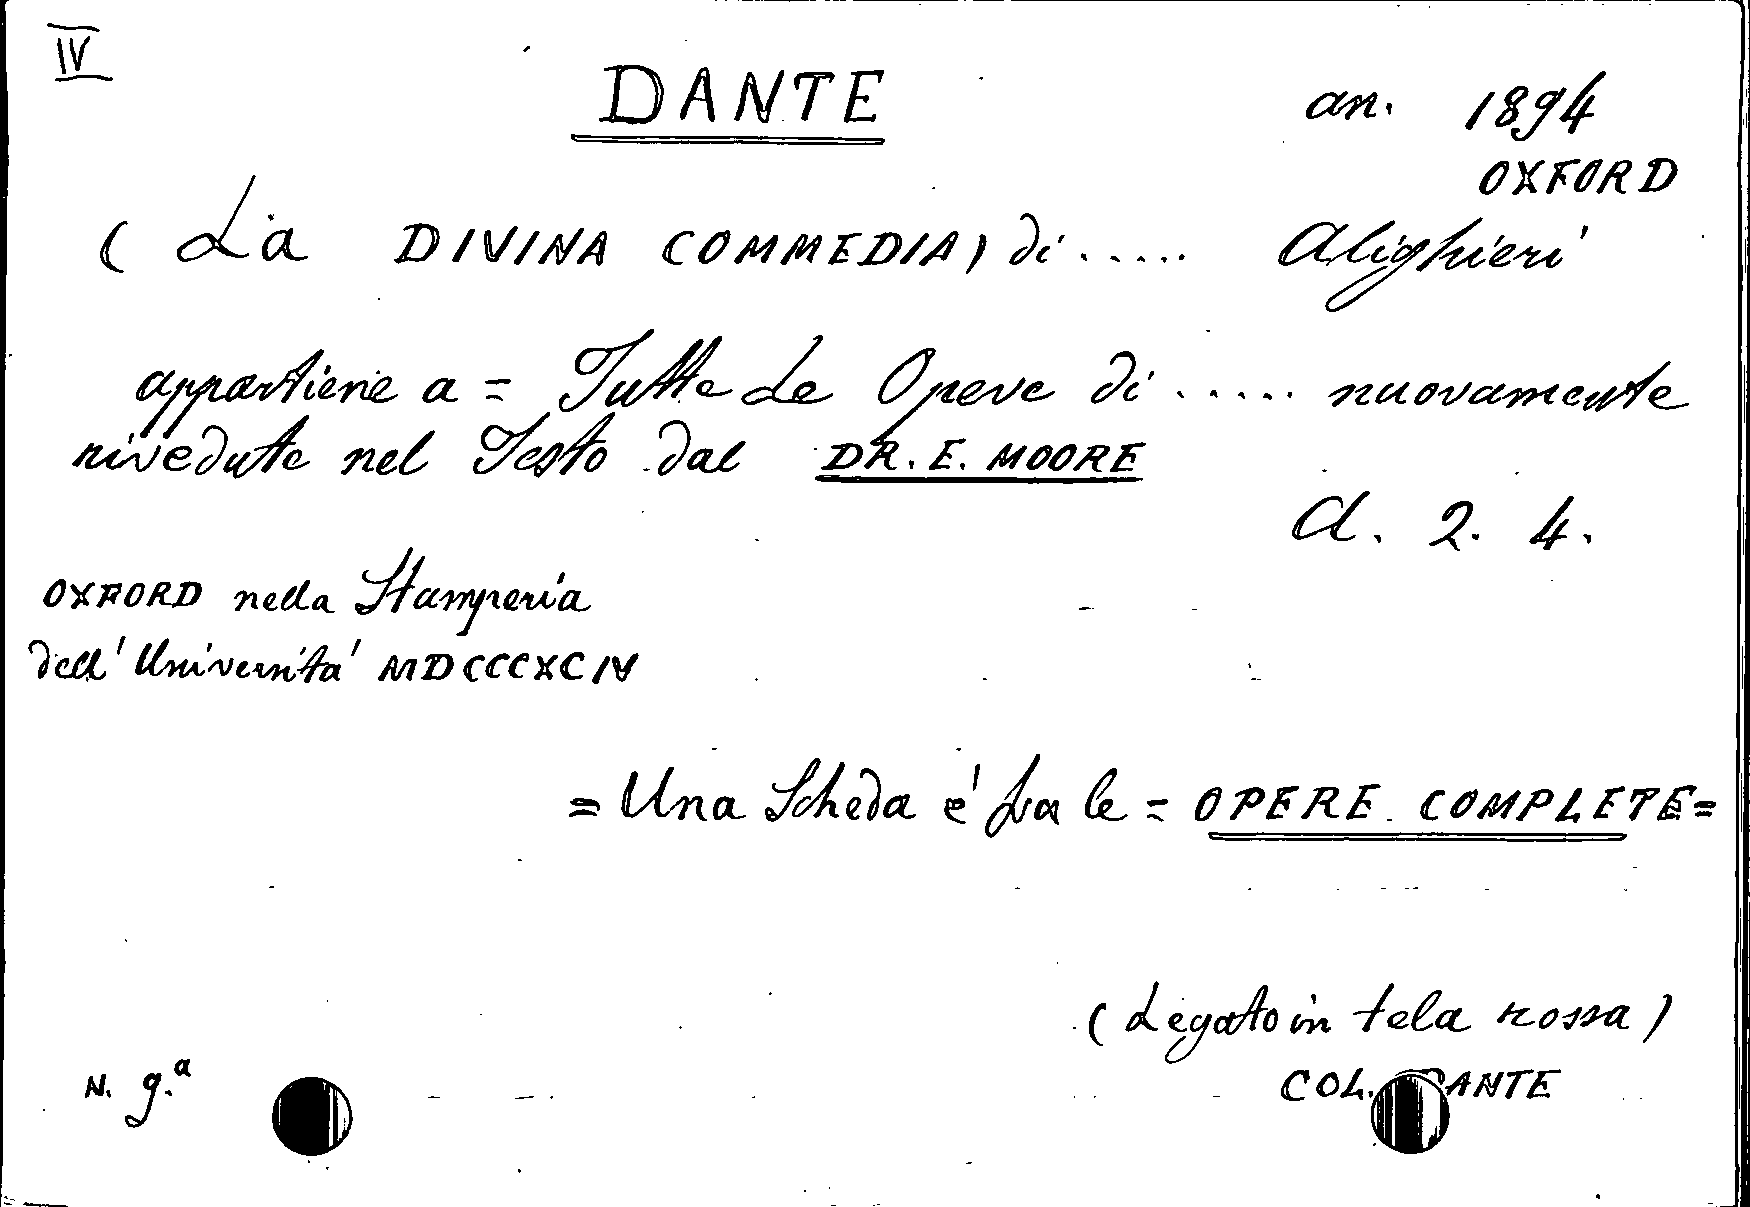 IV
DANTE
an. 1894
OXFORD
( La DIVINA COMMEDIA) di ..... Alighieri
appartiene a = Tutte Le Opere di ..... nuovamente
rivedute nel Testo dal DR. E. MOORE
d. 2. 4.
OXFORD nella Stamperia
dell' Università MDCCCXCIV
= Una Scheda è fra le = OPERE COMPLETE =
( Legato in tela rossa )
N. g.a
COL. DANTE